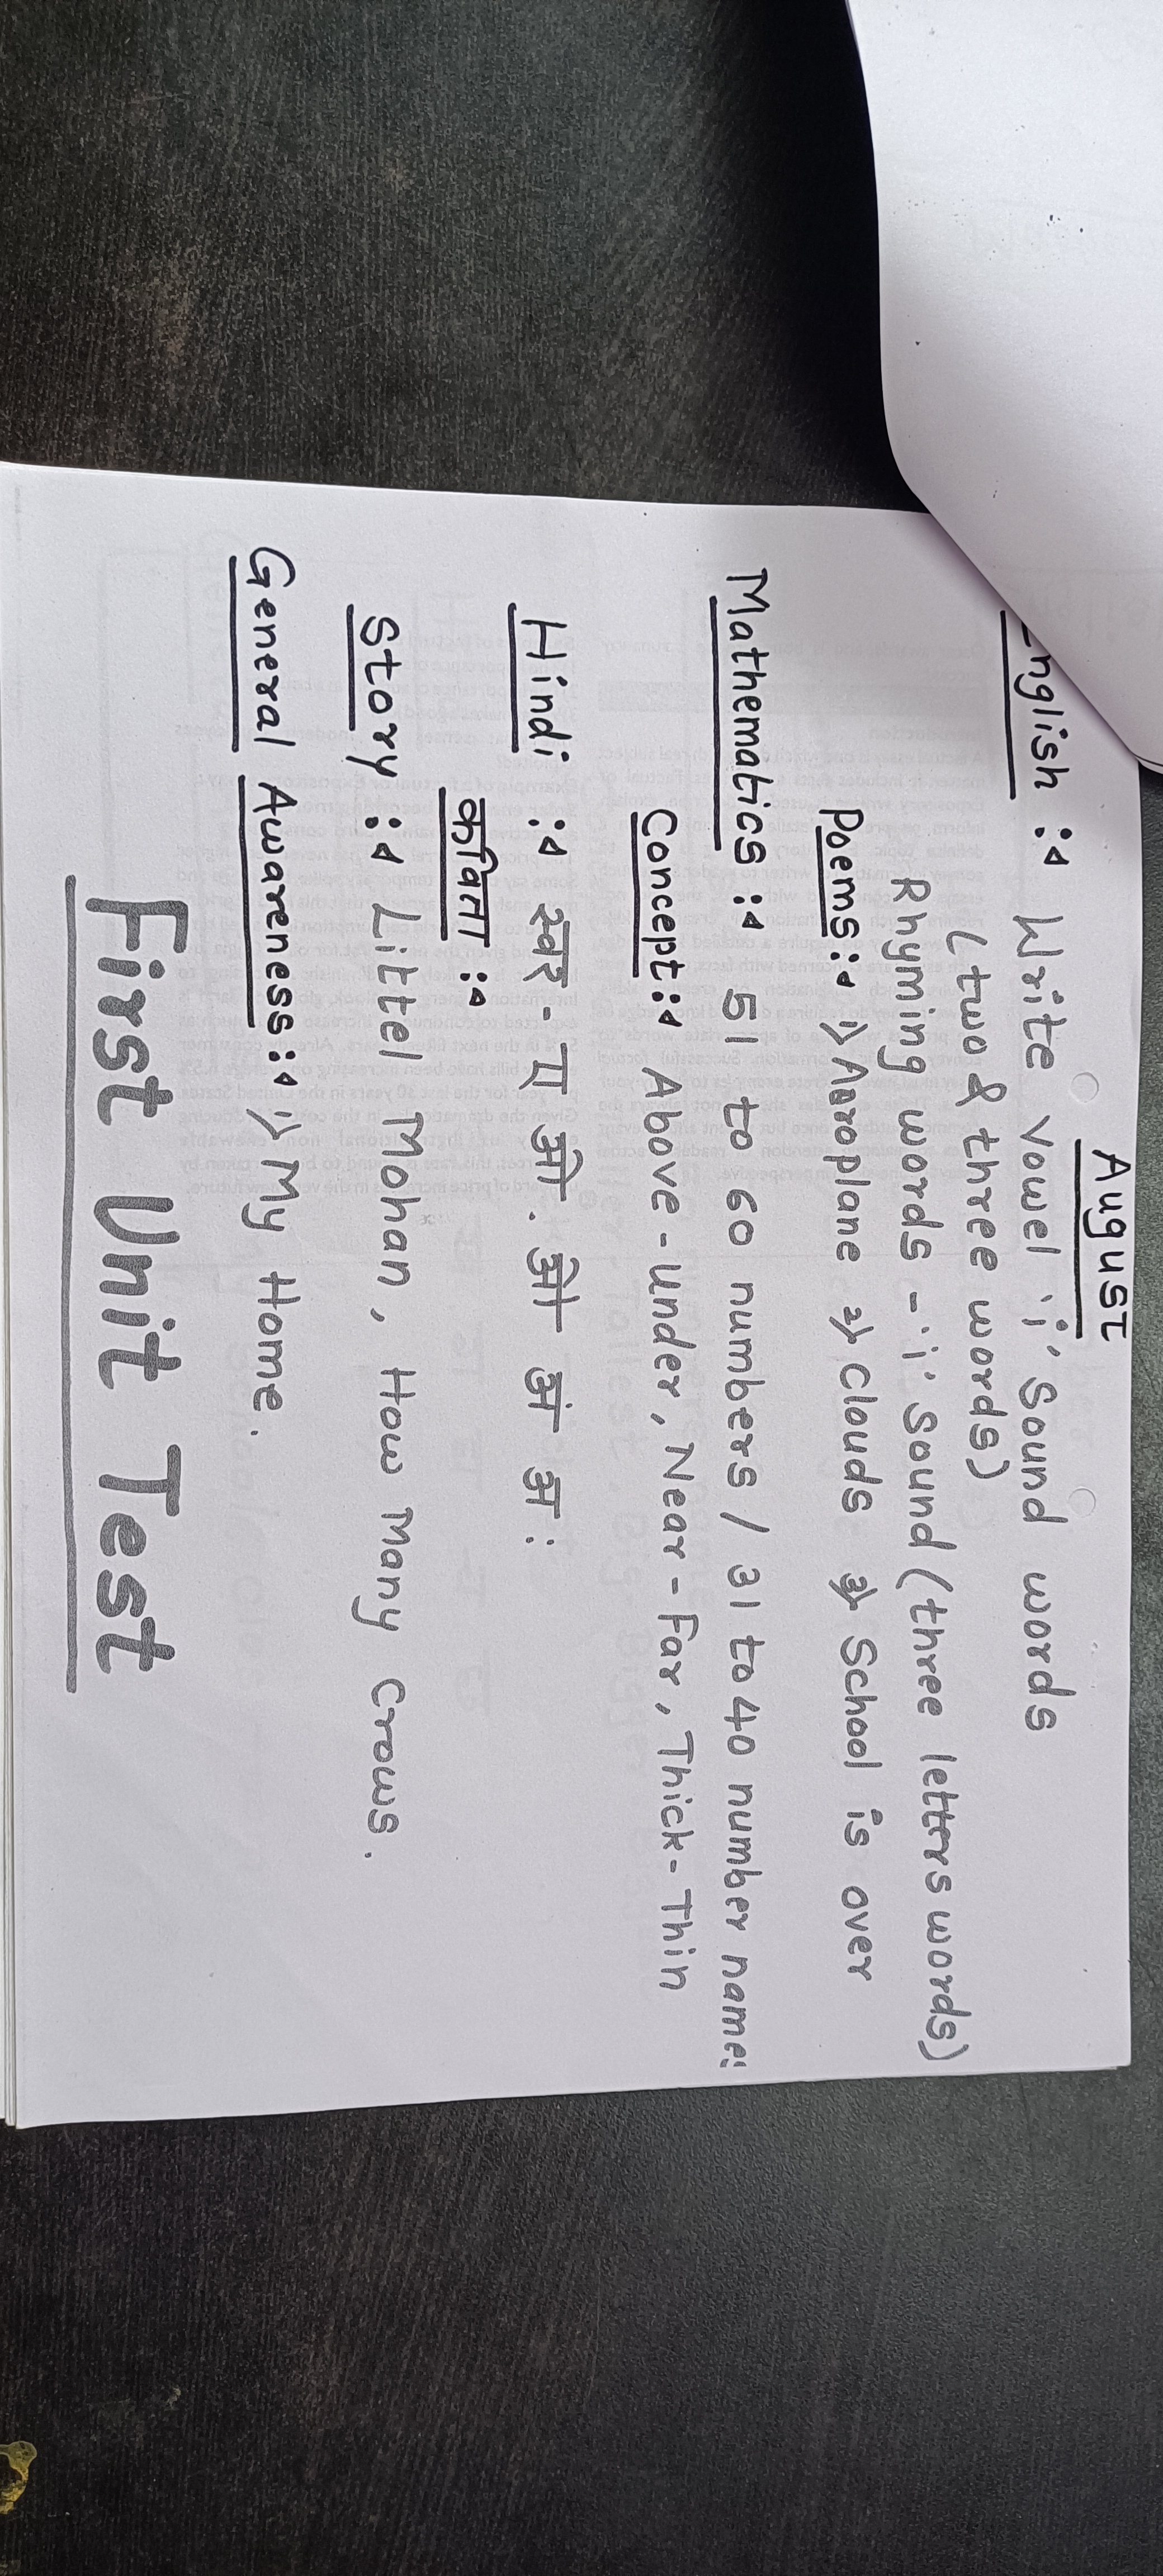 August
English :- Write vowel 'i' Sound words
(two & three words)
Rhyming words - 'i' Sound (three letters words)
Poems :- 1) Aeroplane 2) Clouds 3) School is over
Mathematics :- 51 to 60 numbers / 31 to 40 number names
Concept :- Above - under, Near - Far, Thick - Thin
Hindi :- स्वर - ए ओ . औ अं अ:
कविता :-
Story :- Littel Mohan, How Many Crows.
General Awareness :- 1) My Home.
First Unit Test